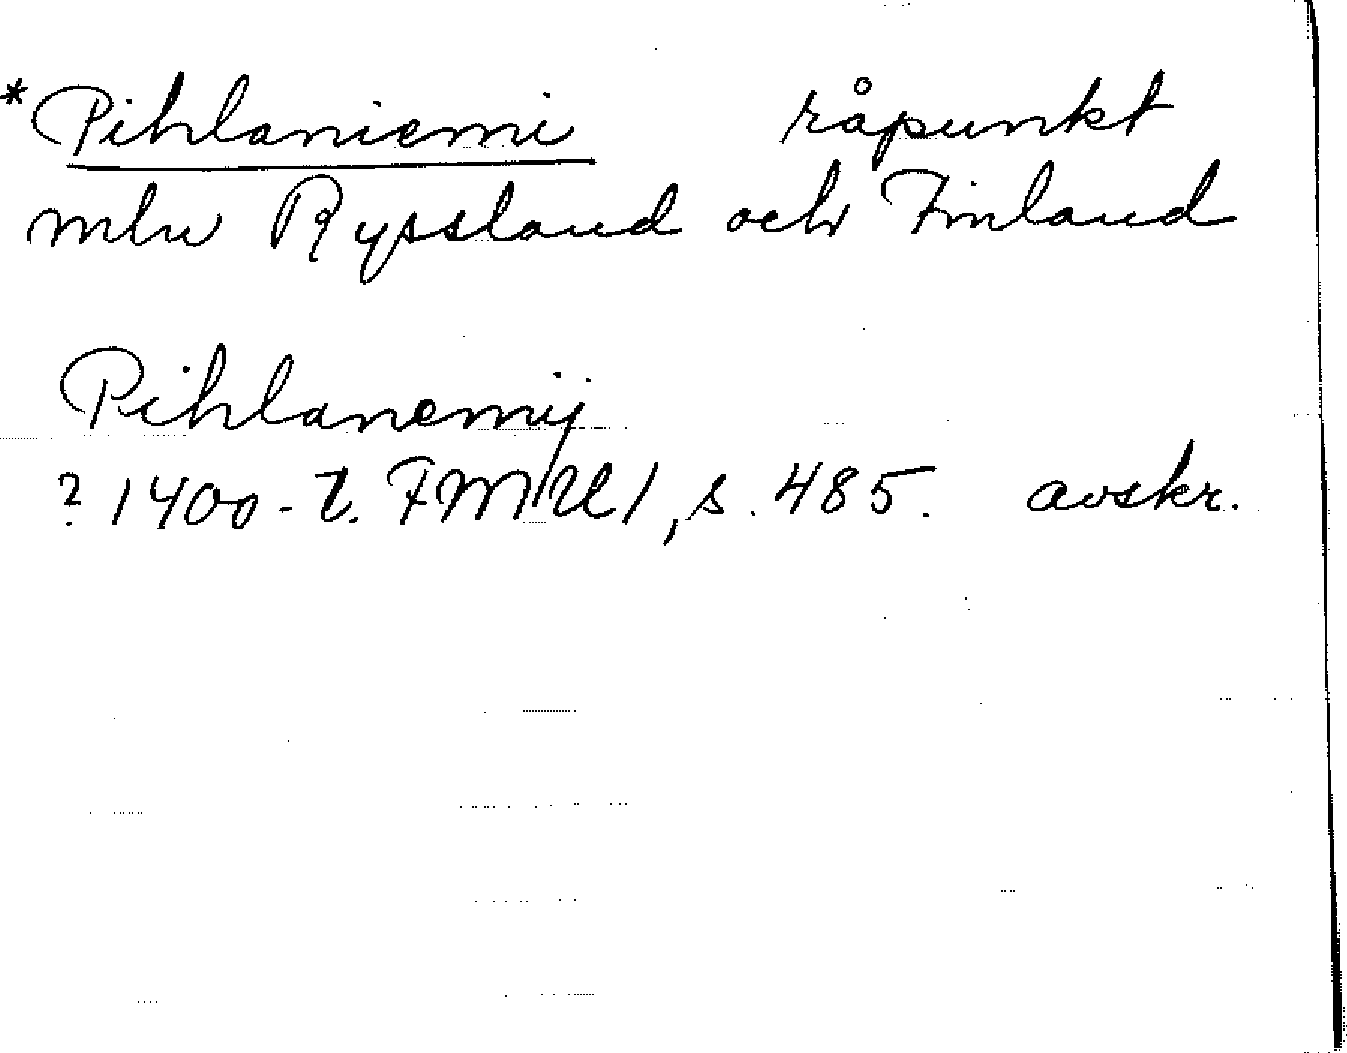 *Pihlaniemi råpunkt
mln Ryssland och Finland
Pihlanemij
? 1400-t. FMU I, s. 485. avskr.